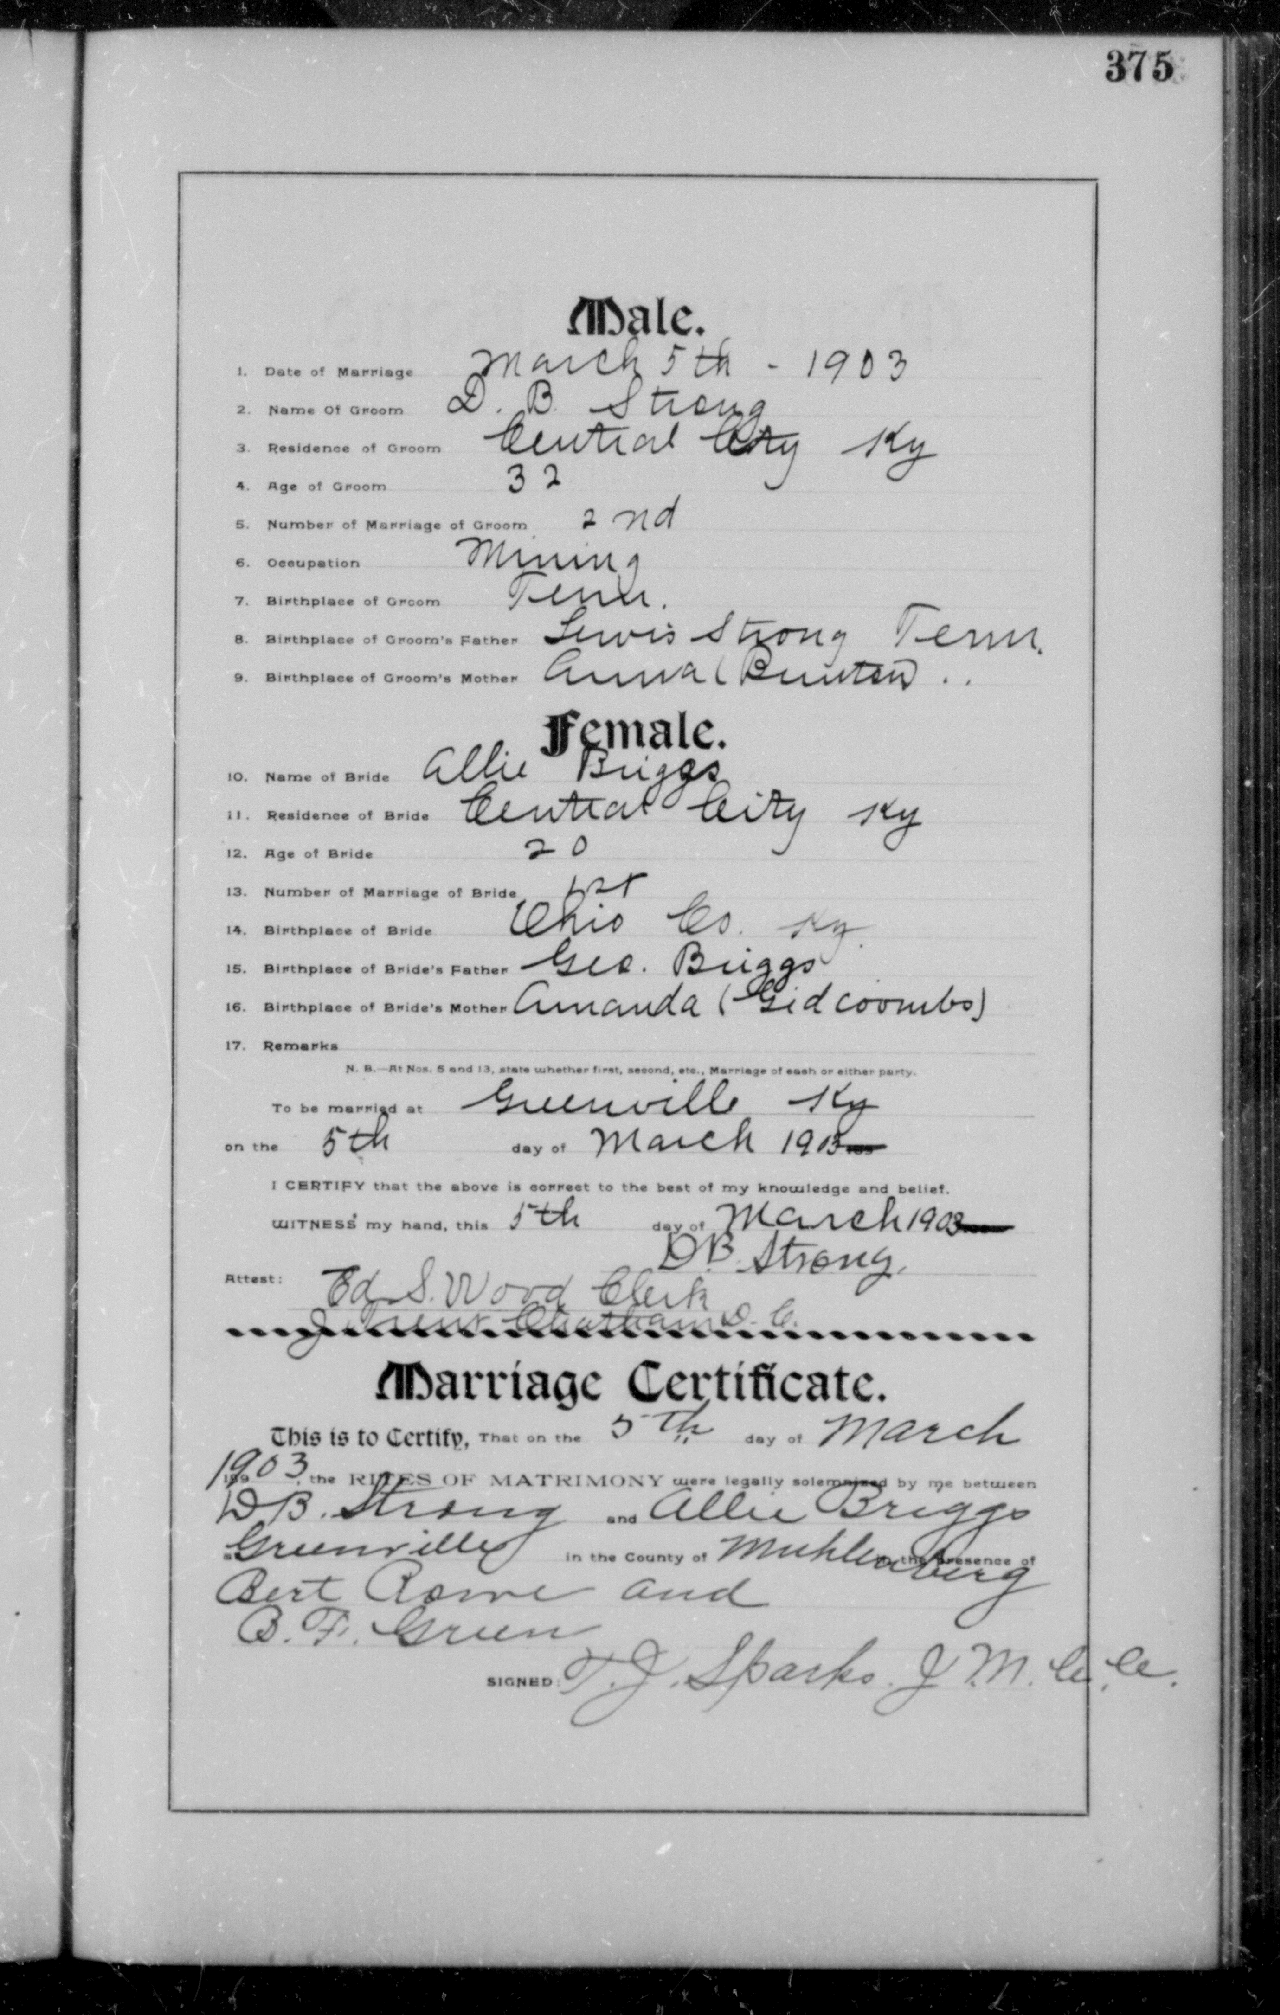 375
Male.
1. Date of Marriage March 5th - 1903
2. Name Of Groom D. B. Strong
3. Residence of Groom Central City Ky
4. Age of Groom 32
5. Number of Marriage of Groom 2nd
6. Occupation Mining
7. Birthplace of Groom Tenn.
8. Birthplace of Groom's Father Lewis Strong Tenn.
9. Birthplace of Groom's Mother Anna (Bunton) ..
Female.
10. Name of Bride Allie Briggs
11. Residence of Bride Central City Ky
12. Age of Bride 20
13. Number of Marriage of Bride 1st
14. Birthplace of Bride Ohio Co. Ky.
15. Birthplace of Bride's Father Geo. Briggs
16. Birthplace of Bride's Mother Amanda (Gidcoombs)
17. Remarks
N. B.—At Nos. 5 and 13, state whether first, second, etc., Marriage of each or either party.
To be married at Greenville Ky
on the 5th day of March 1903
I CERTIFY that the above is correct to the best of my knowledge and belief.
WITNESS my hand, this 5th day of March 1903
D.B. Strong.
Attest: Ed. S. Wood Clerk
J. Chatham D. C.
Marriage Certificate.
This is to Certify, That on the 5th day of March
1903, the RITES OF MATRIMONY were legally solemnized by me between
D B. Strong and Allie Briggs
Greenville in the County of Muhlenberg in the presence of
Bert Rowe and
B. F. Green
SIGNED: T. J. Sparks. J. M. C. C.